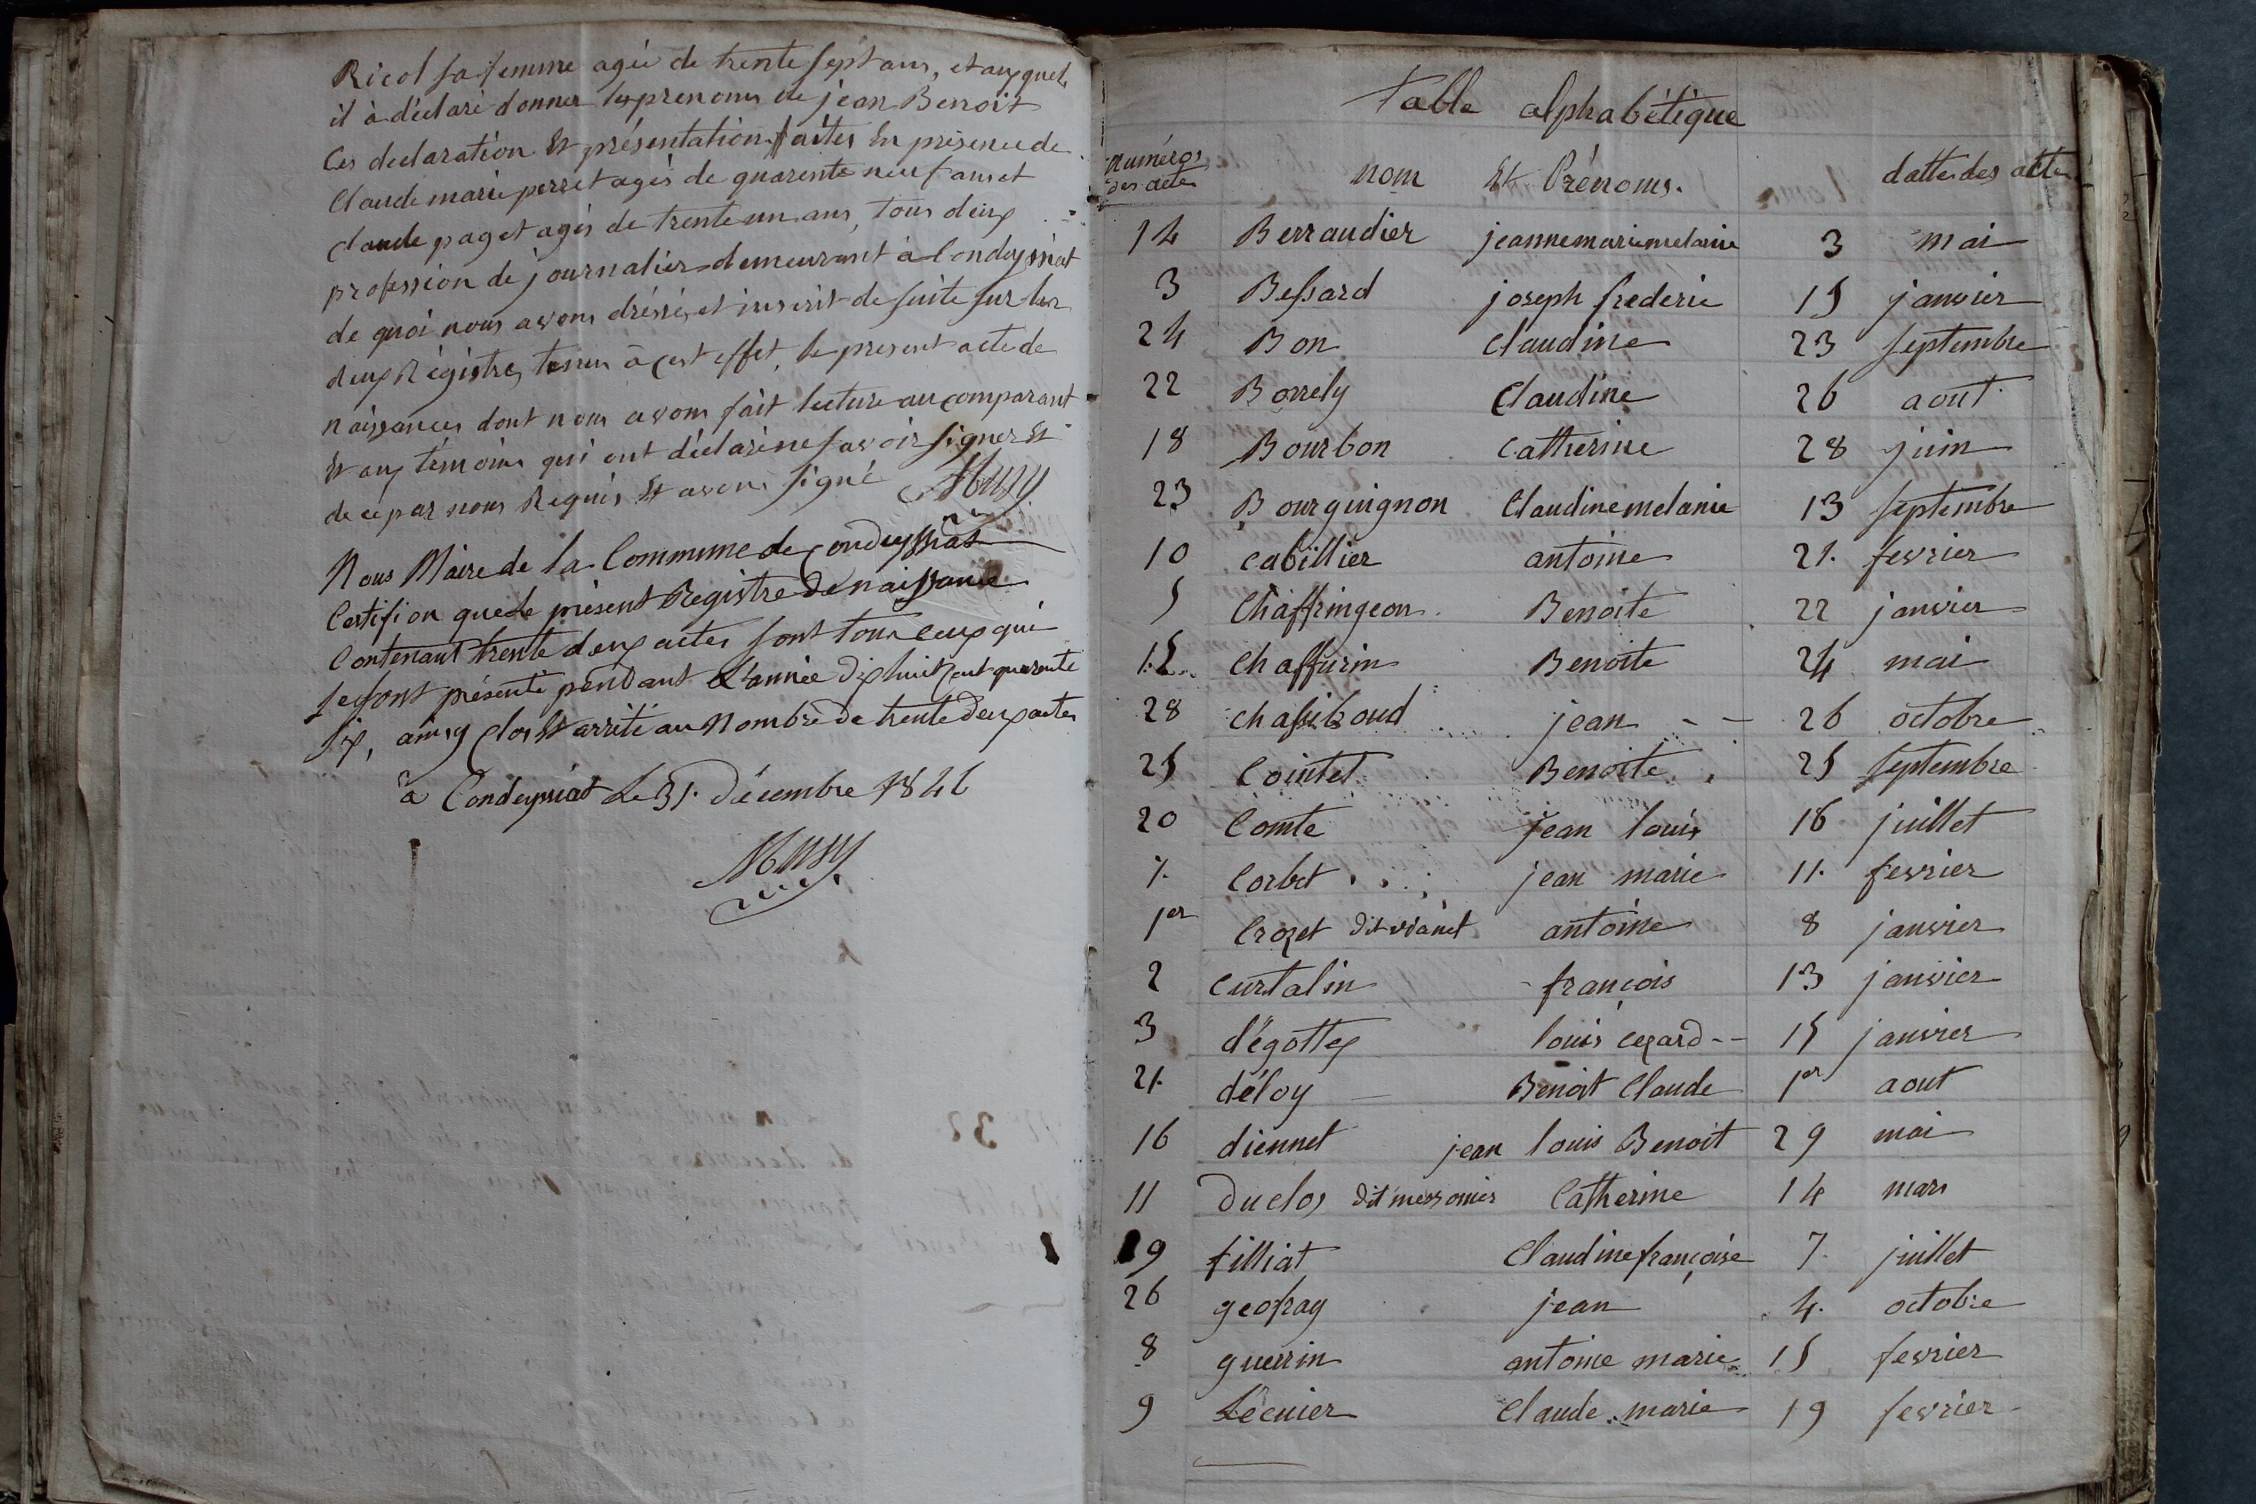 Ricol sa femme agée de trente sept ans, et auquel,
il à déclaré donner les prenoms de jean Benoit
Ces declaration Et présentation faites En présence de
Claude marie perret agés de quarente neuf ans et
Claude paget agés de trente un ans, tous deux
profession de journalier demeurant à Condeyssiat
de quoi nous avons dréssé, et inscrit de suite sur les
deux Régistres tenus à cest effet, le present acte de
naissances dont nous avons fait lecture au comparant
Et aux témoins qui ont déclaré ne savoir signer Et
de ce par nous Requis Et avons signé Muzy
Nous Maire de la Commune de Condeyssiat
Certifion que Le présent Registre De naissance
Contenant trente deux actes sont tous ceux qui
se sont présenté pendant L'année Dix huit cent quarente
six, ainsy Clos Et arrêté au Nombre De trente Deux actes
à Condeyssiat Le 31. Décembre 1846
Muzy
Table alphabétique
Numéros des actes nom Et Prénoms. datte des actes
14 Berraudier jeanne marie melanie 3 mai
3 Bessard joseph frederic 15 janvier
24 Bon Claudine 23 septembre
22 Borrely Claudine 26 aout
18 Bourbon Catherine 28 juin
23 Bourguignon Claudine melanie 13 septembre
10 Cabillier antoine 21. fevrier
5 Chaffringeon Benoite 22 janvier
15. Chaffurin Benoite 24 mai
28 Chassiboud jean -- 26 octobre
25 Cointet Benoite 25 septembre
20 Comte jean louis 16 juillet
7. Corbet jean marie 11. fevrier
1er Crozet dit vianet antoine 8 janvier
2 Curtalin françois 13 janvier
3 dégottex louis cezard -- 15 janvier
21. déloy Benoit Claude 1er aout
16 diennet jean louis Benoit 29 mai
11 Duclos dit messonier Catherine 14 mars
19 filliat Claudine françoise 7. juillet
26 geofray jean 4. octobre
8 guerrin antoine marie 15 fevrier
9 Lécuier Claude marie 19 fevrier